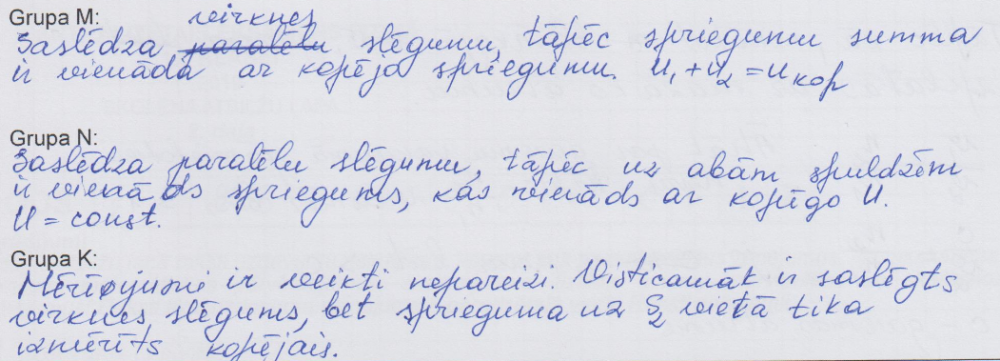 Grupa M:
virknes
Saslēdza paralēlu slēgumu, tāpēc spriegumu summa
ir vienāda ar kopējo spriegumu. U₁+U₂=Uкор
Grupa N:
Saslēdza paralēlu slēgumu, tāpēc uz abām spuldzēm
ir vienāds spriegums, kas vienāds ar kopīgo U.
U = const.
Grupa K:
Mērījumi ir veikti nepareizi. Visticamāk ir saslēgts
virknes slēgums, bet sprieguma uz S₂ vietā tika
izmērīts kopējais.